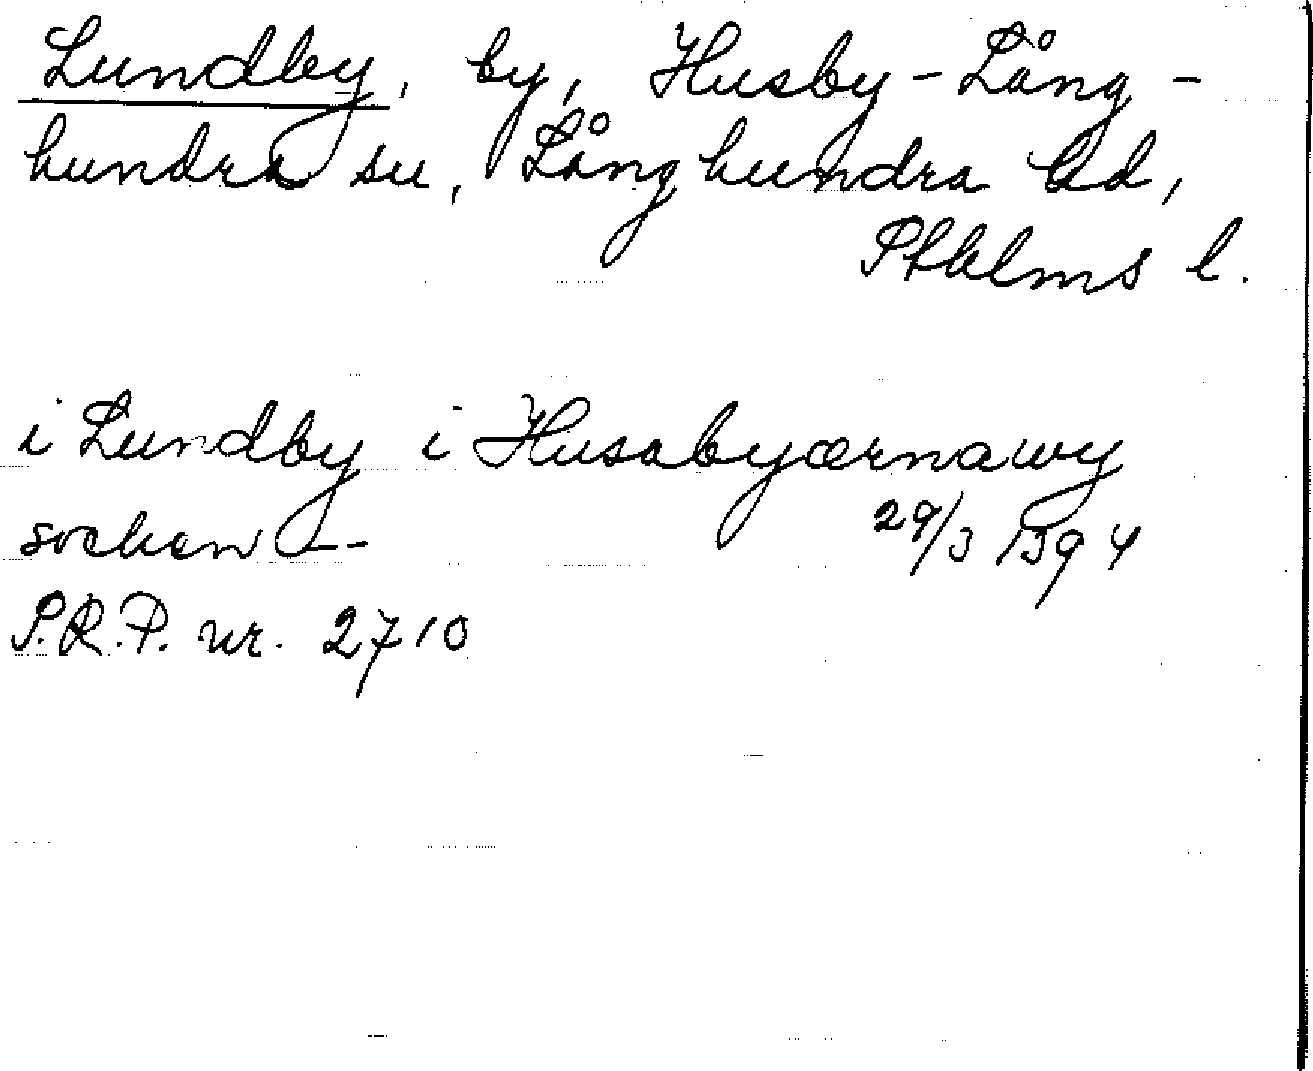 Lundby, by, Husby-Lång-
hundra sn, Långhundra hd,
Sthlms l.
i Lundby i Husabyærnawy
socken -- 29/3 1394
S.R.P. nr. 2710